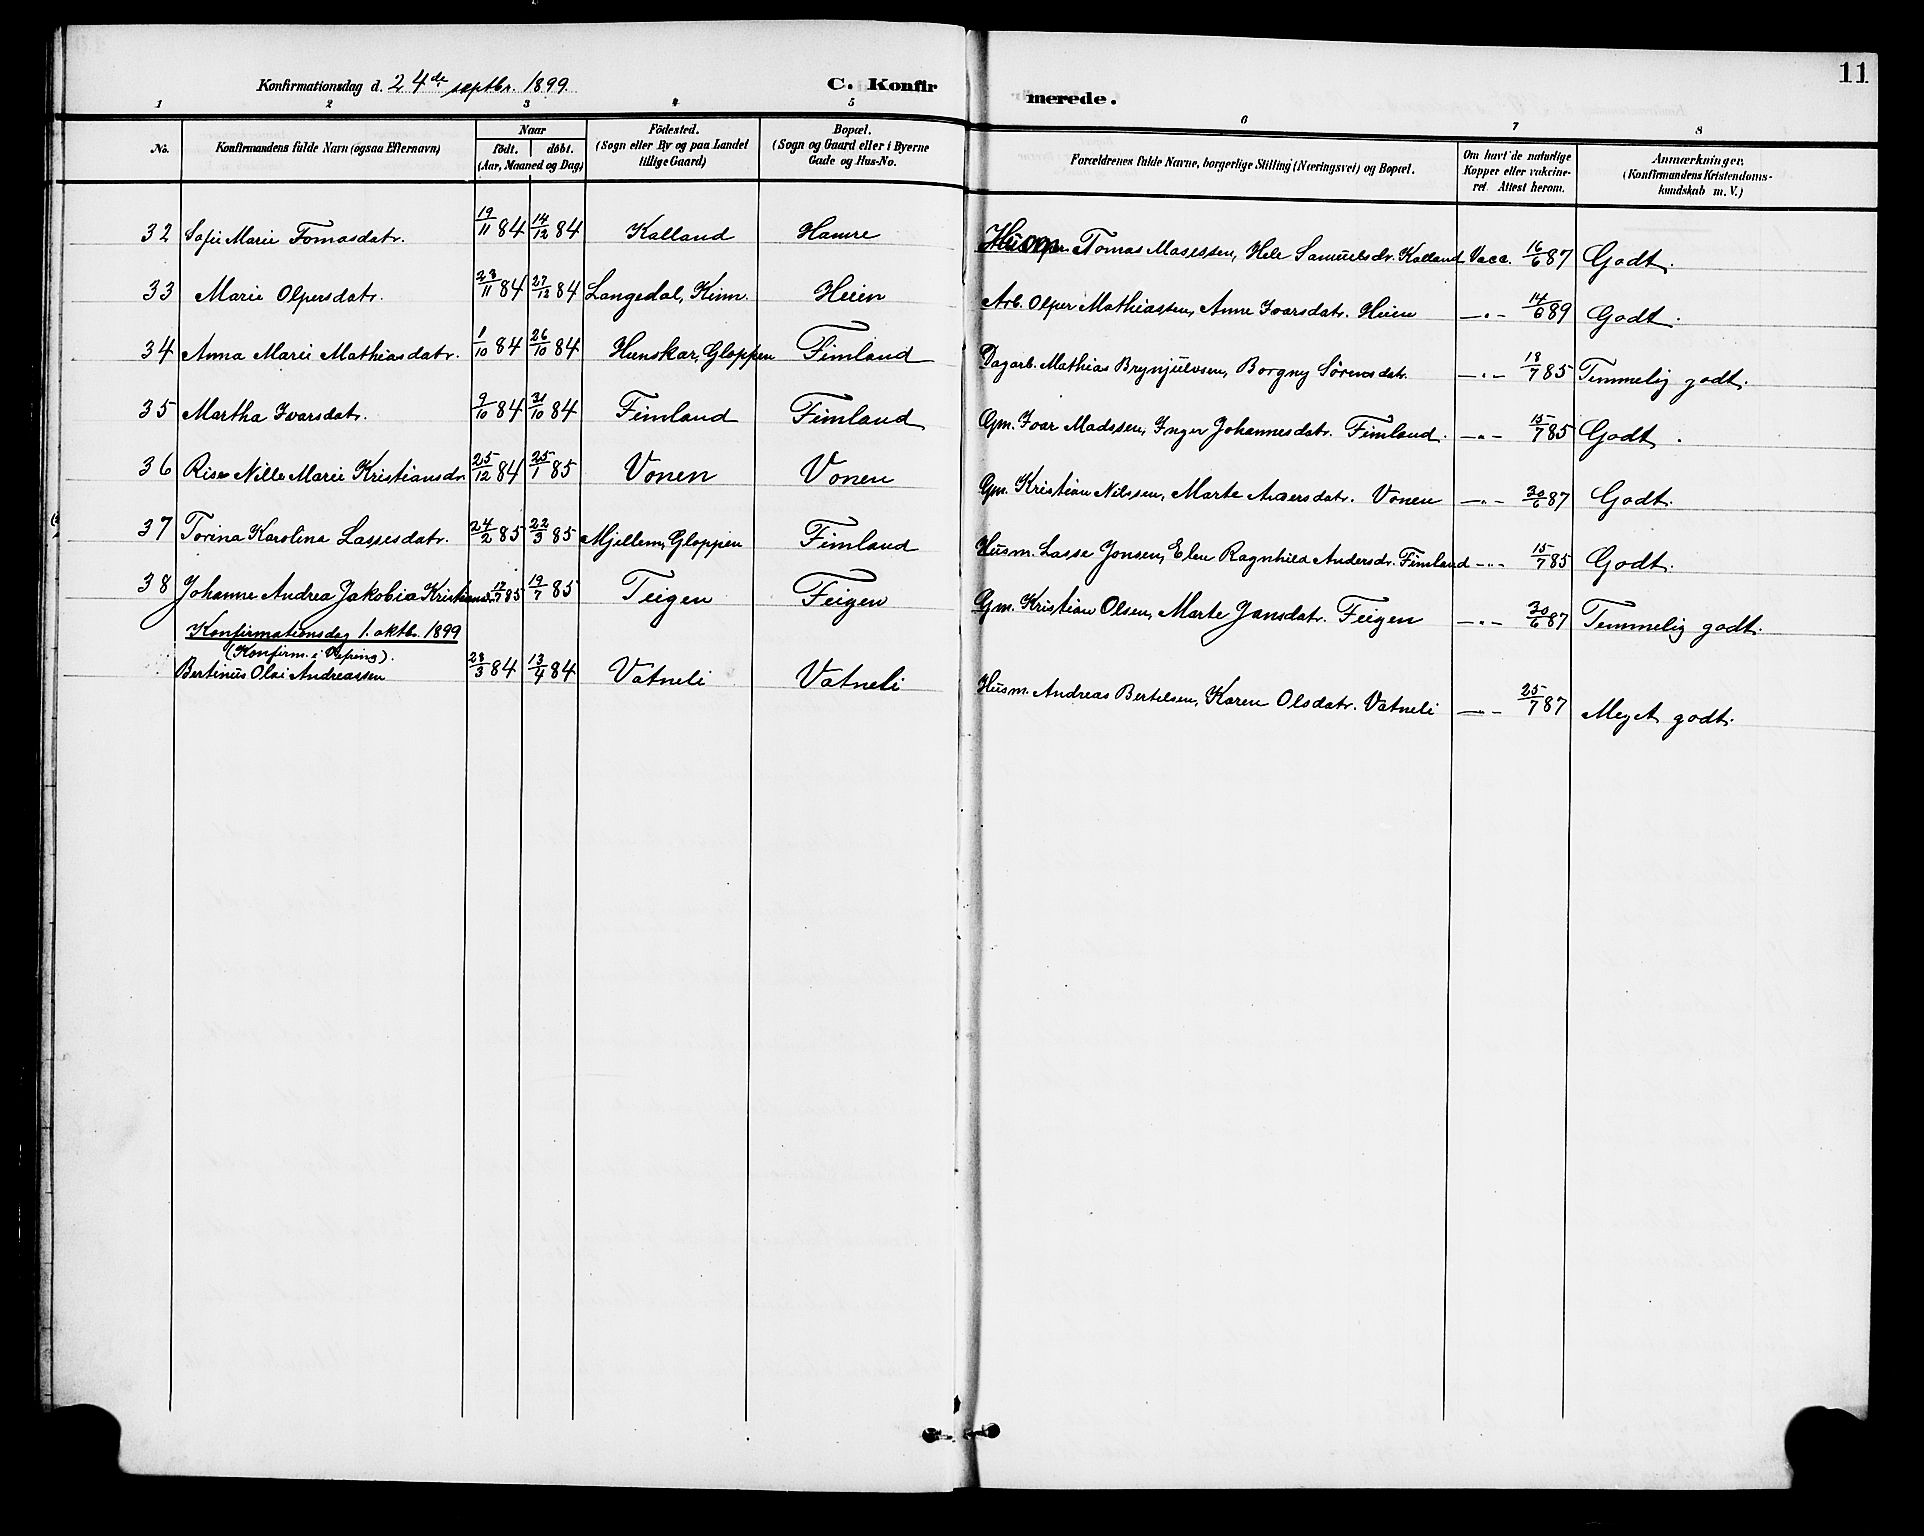 11
Konfirmationsdag d. 24de septbr. 1899.
C. Konfirmerede.
1 2 3 4 5 6 7 8
No. Konfirmandens fulde Navn (ogsaa Efternavn) Naar født. døbt. (Aar, Maaned og Dag) Fødested. (Sogn eller By og paa Landet tillige Gaard) Bopæl. (Sogn og Gaard eller i Byerne Gade og Hus-No. Forældrenes fulde Navne, borgerlige Stilling (Næringsvei) og Bopæl. Om havt de naturlige Kopper eller vakcineret. Attest herom. Anmærkninger. (Konfirmandens Kristendomskundskab m. V.)
32 Sofie Marie Tomasdatr. 19/11 84 14/12 84 Kalland Hamre Tomas Masessen, Hele Samuelsdr. Kalland Vacc. 16/6 87 Godt.
33 Marie Olpersdatr. 23/11 84 27/12 84 Langedal, Kinn. Heien Arb. Olper Mathiassen, Anne Ivarsdatr. Heien —"— 14/6 89 Godt.
34 Anna Marie Mathiasdatr. 1/10 84 26/10 84 Hunskar, Gloppen Fimland Dagarb. Mathias Brynjulvsen, Borgny Sørensdatr. —"— 18/7 85 Temmelig godt.
35 Martha Ivarsdatr. 9/10 84 31/10 84 Fimland Fimland Gm. Ivar Madssen, Inger Johannesdatr. Fimland. —"— 15/7 85 Godt.
36 Rise Nille Marie Kristiansdr. 25/12 84 25/1 85 Vonen Vonen Gm. Kristian Nilssen, Marte Andersdatr. Vonen —"— 30/6 87 Godt.
37 Torina Karolina Lassesdatr. 24/2 85 22/3 85 Mjellem, Gloppen Fimland Husm. Lasse Jonsen, Elen Ragnhild Andersdr. Fimland —"— 15/7 85 Godt.
38 Johanne Andrea Jakobia Kristiansd. 12/7 85 19/7 85 Teigen Teigen Gm. Kristian Olsen, Marte Jansdatr. Teigen —"— 30/6 87 Temmelig godt.
Konfirmationsdag 1. oktbr. 1899
(Konfirm. i Vefring).
Bertinus Olai Andreassen 23/3 84 13/4 84 Vatneli Vatneli Husm. Andreas Bertelsen, Karen Olsdatr. Vatneli —"— 25/7 87 Meget godt.